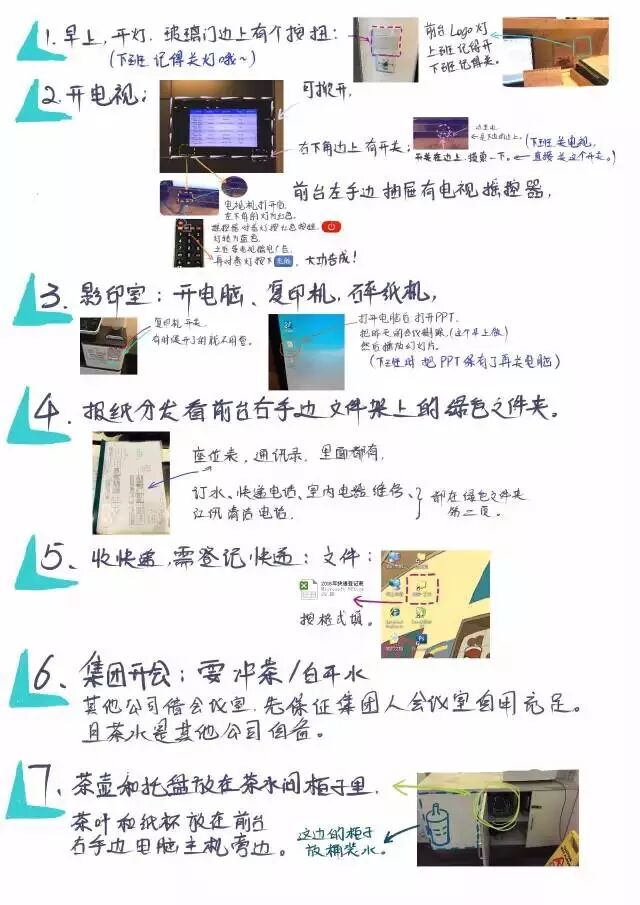 1. 早上，开灯，玻璃门边上有个按钮：
(下班记得关灯哦~)
前台Logo灯
上班记得开
下班记得关。
2. 开电视；
可掀开，
右下角边上有开关；
(下班关电视，
直接关这个开关。)
前台左手边抽屉有电视摇控器，
电视机打开后
左下角的灯为红色。
灯转为蓝色。
再对着灯按下电脑，大功告成！
3. 影印室：开电脑、复印机，碎纸机，
复印机开关
打开电脑后打开PPT.
把昨天的会议删除(这个早上做)
然后播放幻灯片。
(下班时把PPT保存了再关电脑)
4. 报纸分发看前台右手边文件架上的绿色文件夹。
座位表，通讯录，里面都有，
订水、快递电话、室内电器维修、
清洁电话.
都在绿色文件夹
第二页。
5、收快递，需登记快递：文件：
2016年快递登记表
按格式填。
6、集团开会；要冲茶/白开水
其他公司借会议室，先保证集团人会议室自用充足。
且茶水是其他公司自备。
7、茶壶和托盘放在茶水间柜子里，
茶叶和纸杯放在前台
右手边电脑主机旁边。
这边的柜子
放桶装水。